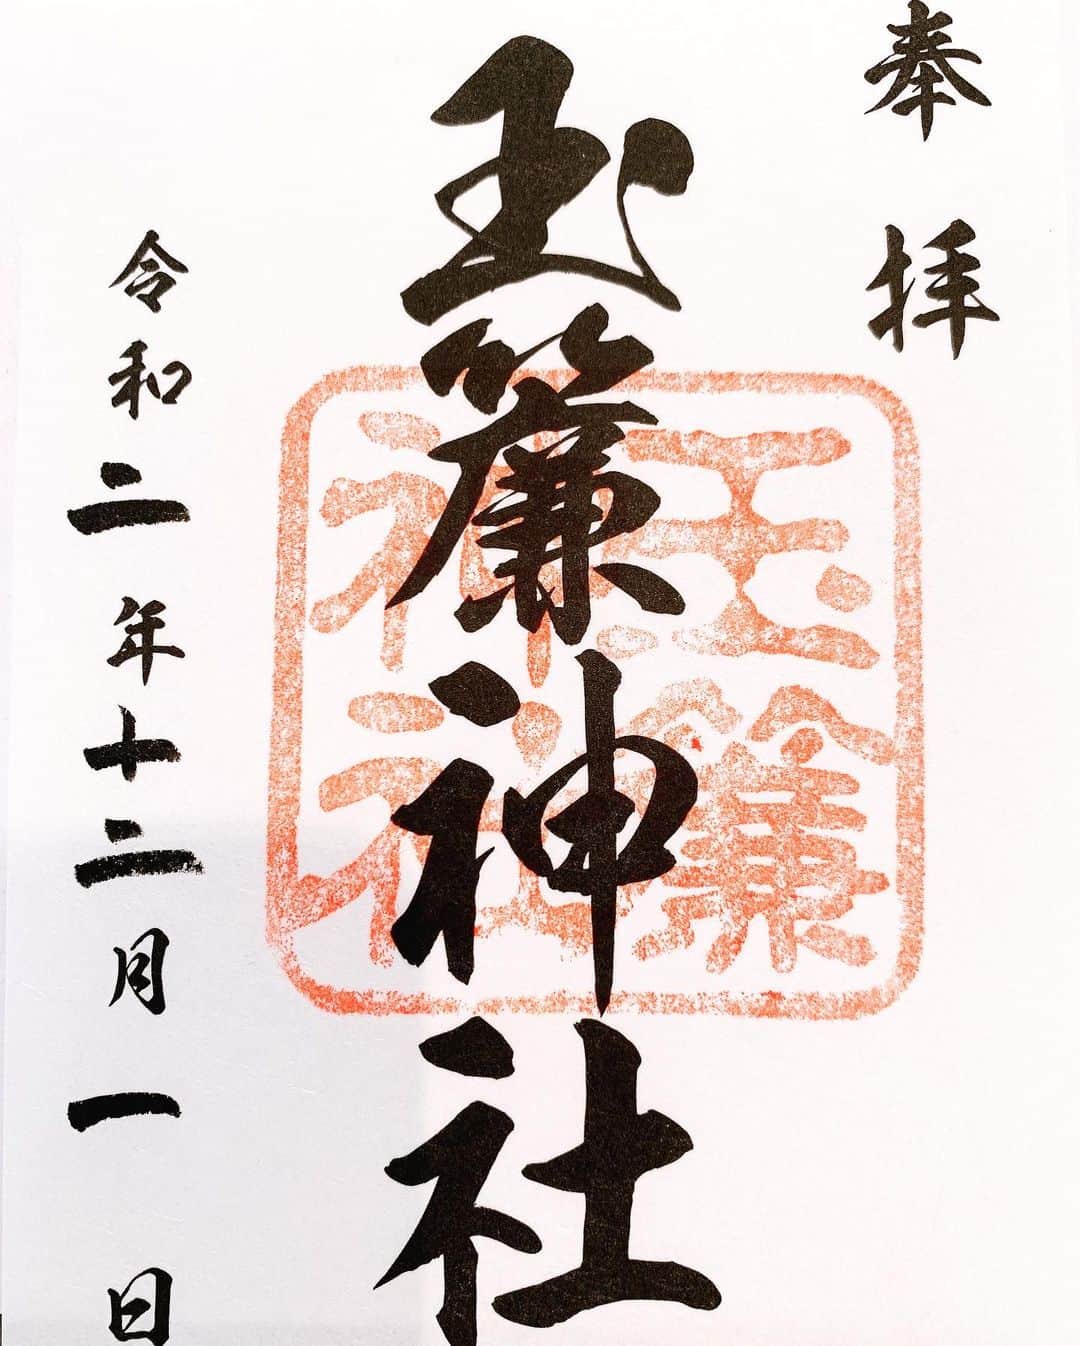 奉拝
玉簾神社
玉簾神社
令和二年十二月一日